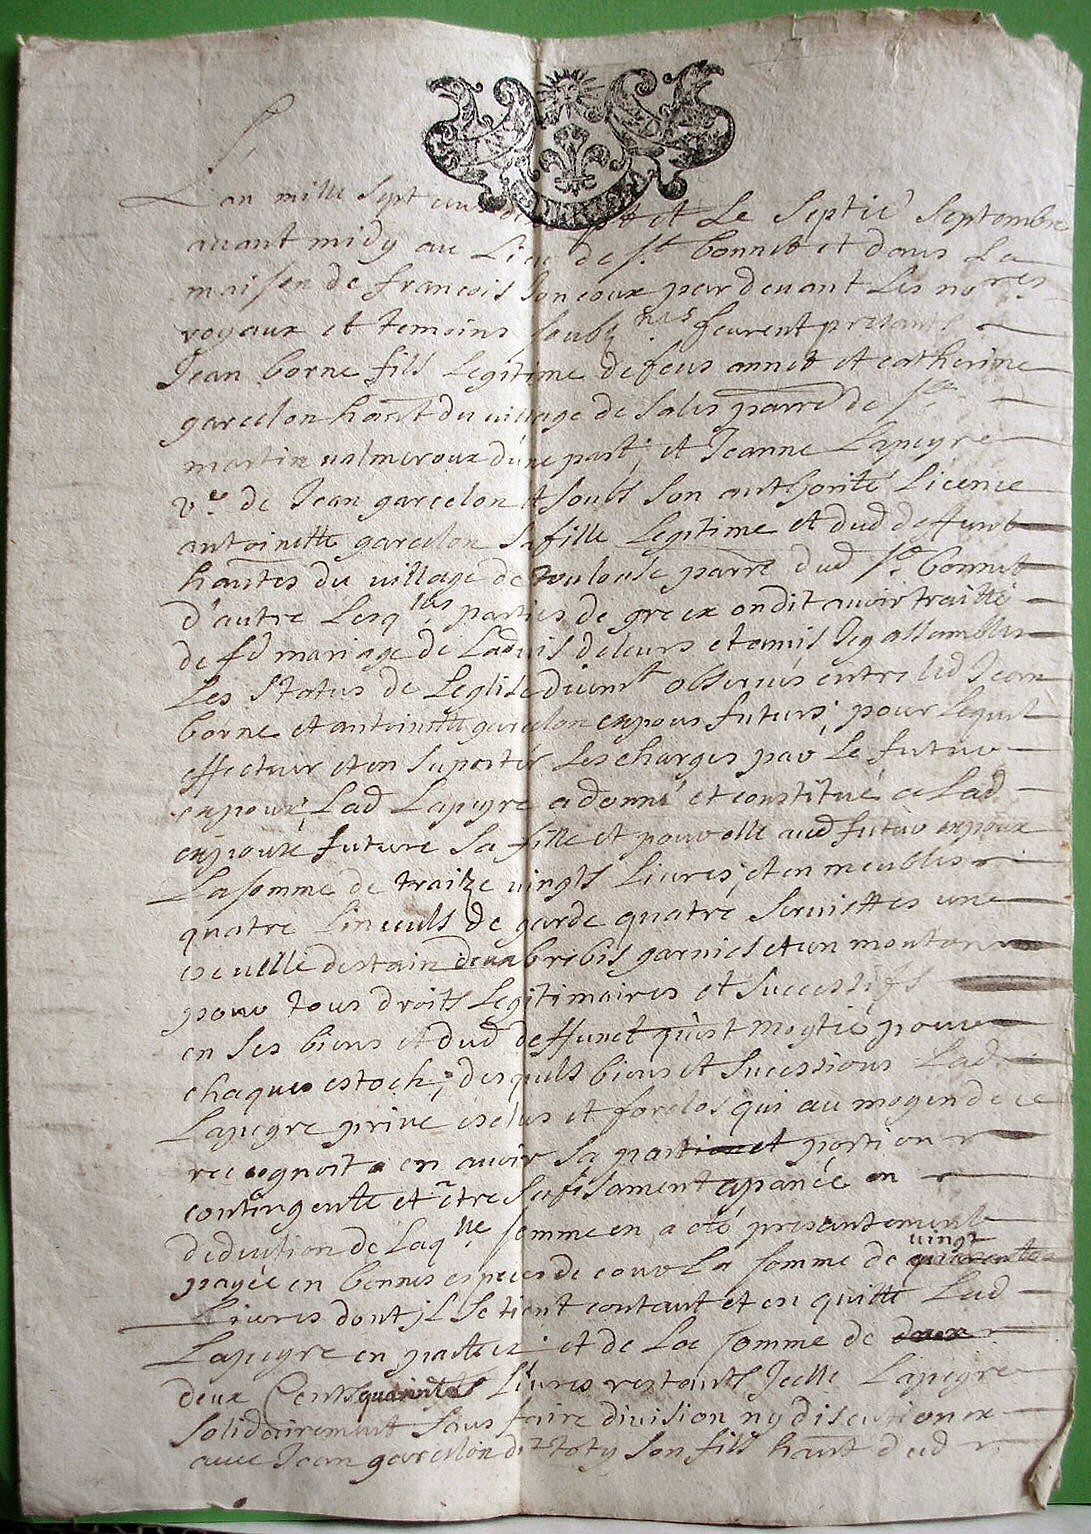 L'an mille sept cens et Le septie septembre
avant midy au Lieu de st bonnet et dans La
maison de francois par devant Les no res
royaux et temoins soubz nes feurent presants
Jean borne fils Legitime de feus annet et catherine
garcelon hant du village de Salis parre de st
martin valmeroux d'une part, et Jeanne Lapeyre
ve de Jean garcelon et soubs son authorité Licence
antoinette garcelon sa fille Legitime et dud deffunct
hantes du village de toulouse parre dud st bonnet
d'autre Lesqlles parties de gre ex ondit avoir traitté
de fd mariage de Ladvis de leurs et amis Icy assambles
Les status de Leglise duemt observés entre led Jean
borne et antoinette garcelon expous futurs; pour Lequel
effectuer et en suporter Les charges par Le futur
expoux, Lad Lapeyre a donné et constitué a Lad
expouze future sa fille et pour elle aud futur expoux
La somme de traitze vingts Livres, et en meubles
quatre Linceuls de garde quatre serviettes une
escuelle destain deux brebis garnies et un mouton
pour tous droits Legitimaires et successifs
en ses biens et dud deffunct quist moytie pour
chaque estock; desquels biens et sucessions Lad
Lapeyre prive exclus et forclos qui au moyen de ce
recognoit en avoir sa part et portion
contingente et etre sufisament apanée en
deduction de Laqlle somme en a eté presantement
payée en bonnes especes de cour La somme de vingt
Livres dont jl se tient contant et en quitte Lad
Lapeyre en et de La somme de
deux Cents quarante Livres restants Jcelle Lapeyre
solidairement sans faire division ny discution
avec Jean garcelon dt toty son fils hant dud